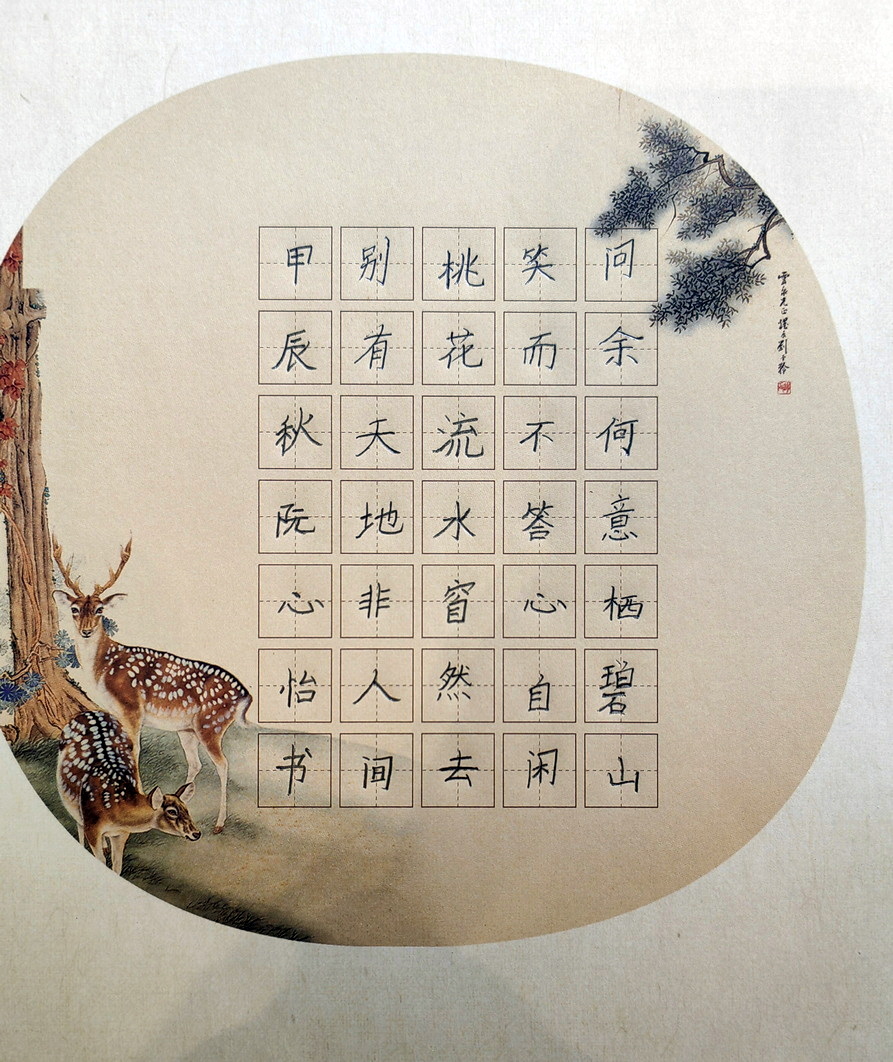 问余何意栖碧山
笑而不答心自闲
桃花流水窅然去
别有天地非人间
甲辰秋阮心怡书